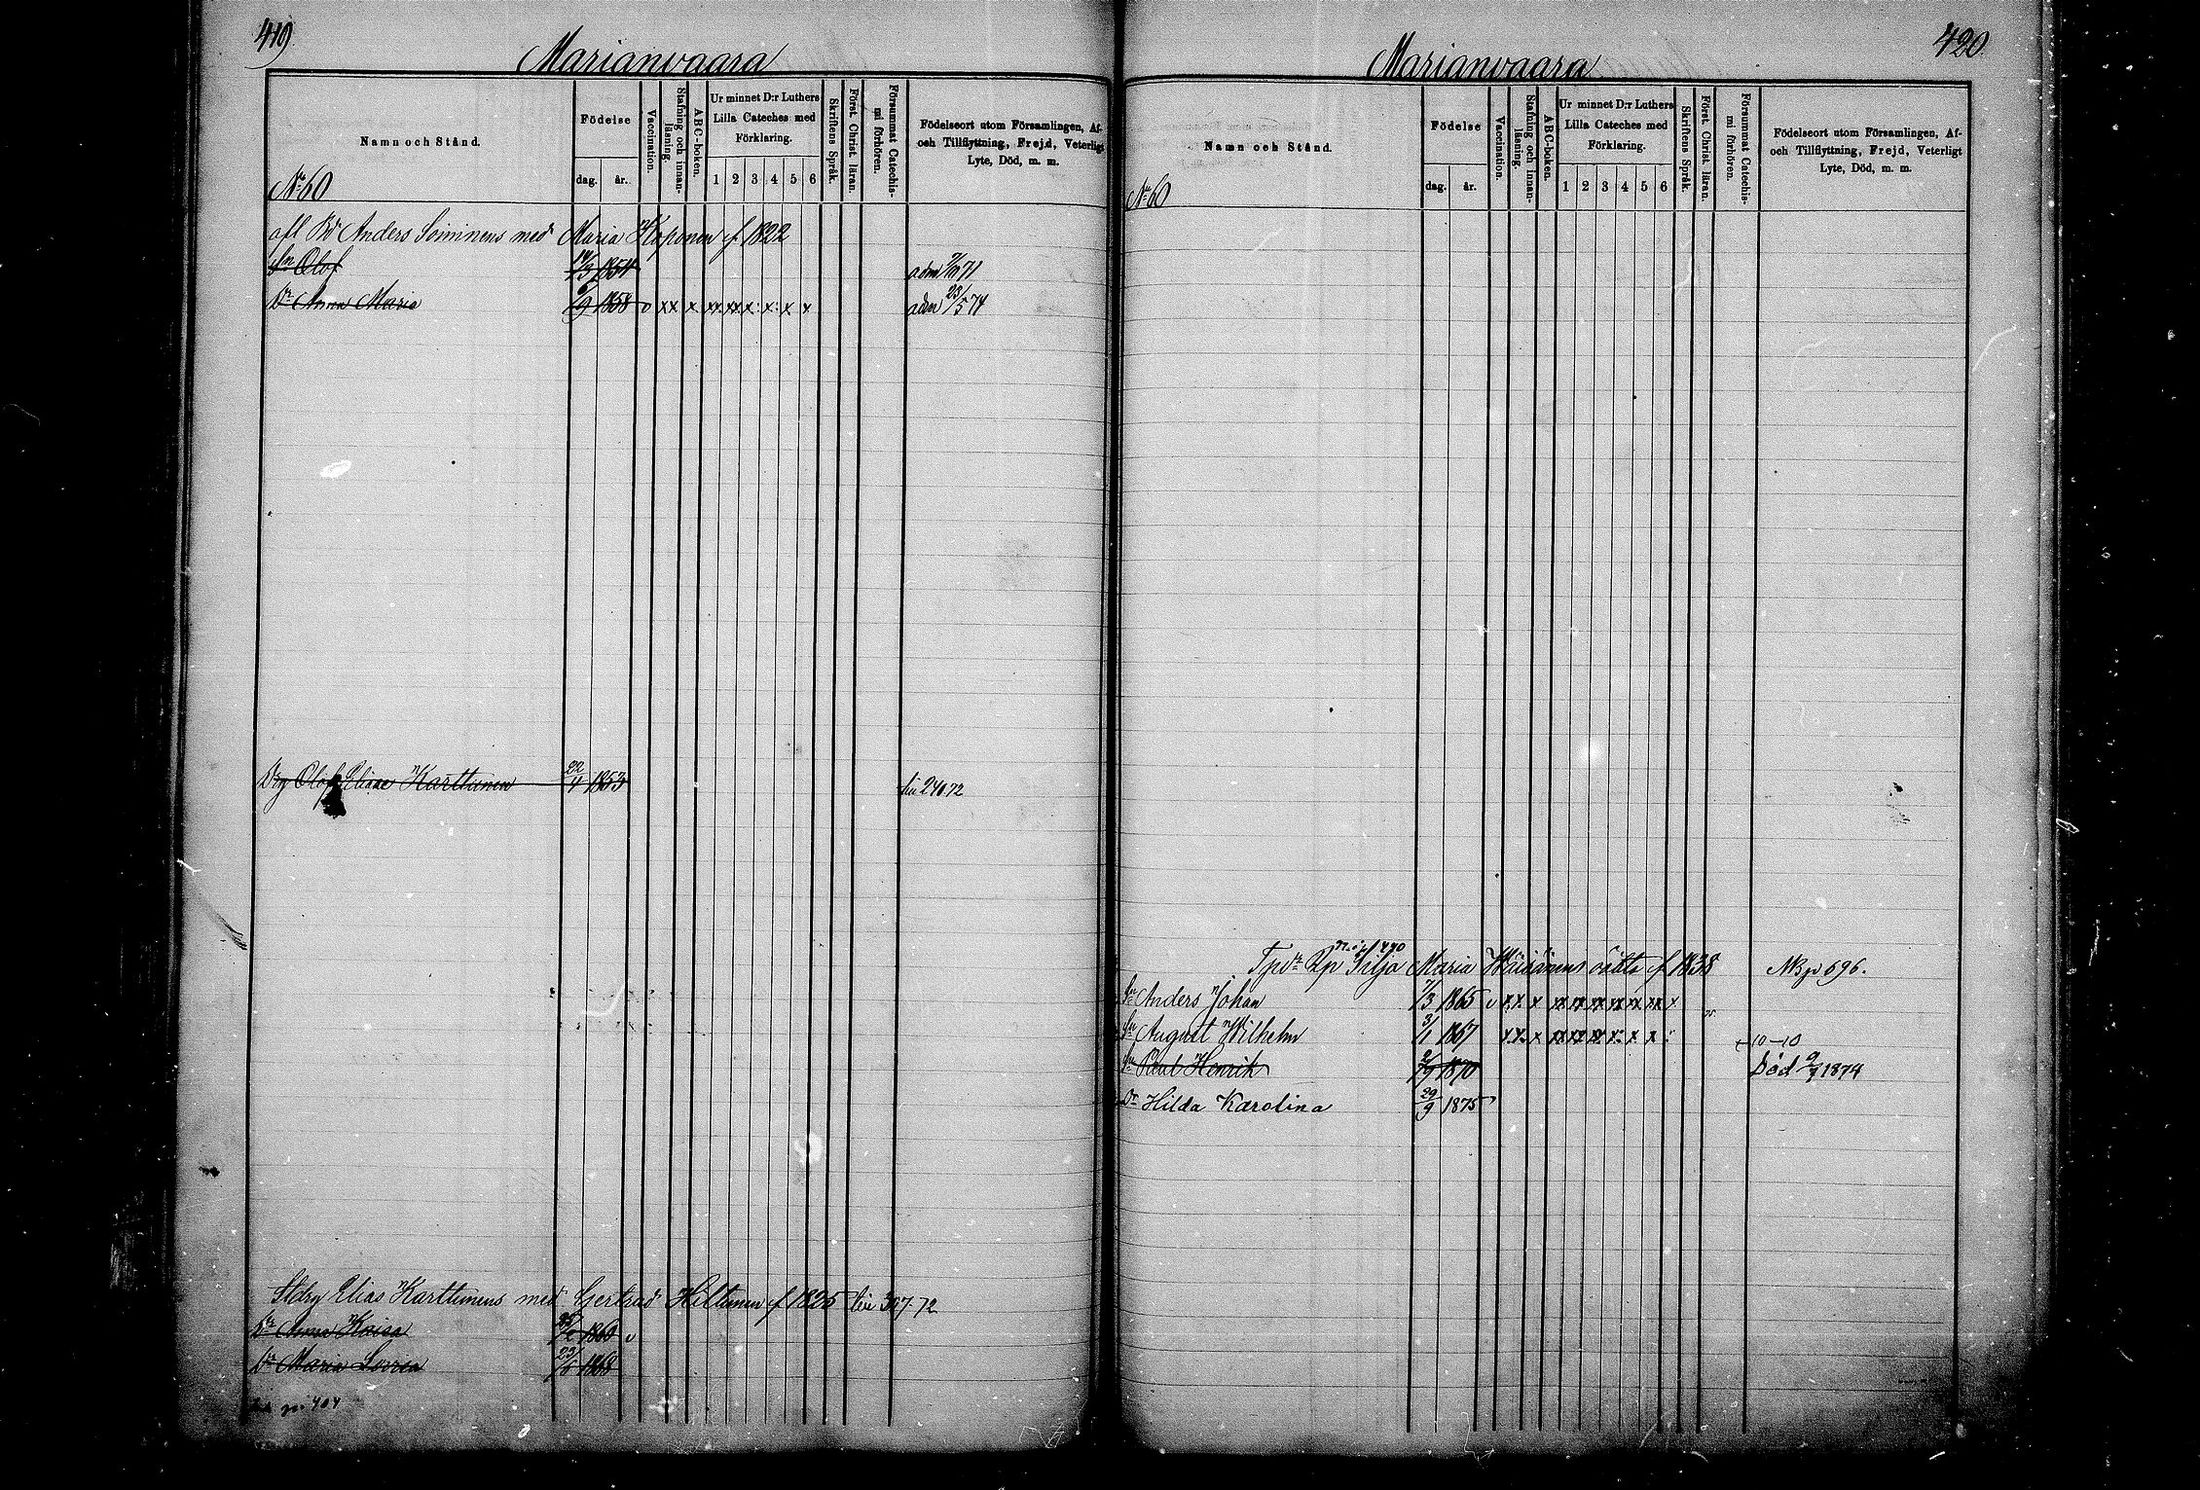 419
Marianvaara
Namn och Stånd.
Födelse
dag.
år.
Vaccination.
Stafning och innan-
läsning.
ABC-boken.
Ur minnet D:r Luthers
Lilla Cateches med
Förklaring.
1 2 3 4 5 6
Skriftens Språk.
Först. Christ. läran.
Försummat Catechis-
mi förhören.
Födelseort utom Församlingen, Af-
och Tillflyttning, Frejd, Veterligt
Lyte, Död, m. m.
No 60
afl Bd Anders Soininens med Maria Koponen f 1822
Sn Olof 1854 71
Dr Anna Maria 6/9 1858 v xx x xx xx x x x x adm 23/5 74
Olof Eliae Karttunen 22/4 1853 240.72
Elias Karttunens med Gertrud Hiltunen f 1825 307-72
Dr Anna Kaisa v
Dr Maria Lovisa 1868
404
420
Marianvaara
Namn och Stånd.
Födelse
dag.
år.
Vaccination.
Stafning och innan-
läsning.
ABC-boken.
Ur minnet D:r Luthers
Lilla Cateches med
Förklaring.
1 2 3 4 5 6
Skriftens Språk.
Först. Christ. läran.
Försummat Catechis-
mi förhören.
Födelseort utom Församlingen, Af-
och Tillflyttning, Frejd, Veterligt
Lyte, Död, m. m.
No 60
440
Silja Maria Väisänens oäkta f 1838 696.
Sn Anders Johan 1865 v xx x xx xx xx xx xx xx x
Sn August Wilhelm 3/1 1867 xx x xx xx xx x x x 10-10
Sn Paul Henrik 1870 Död 1874
Dr Hilda Karolina 29/9 1875